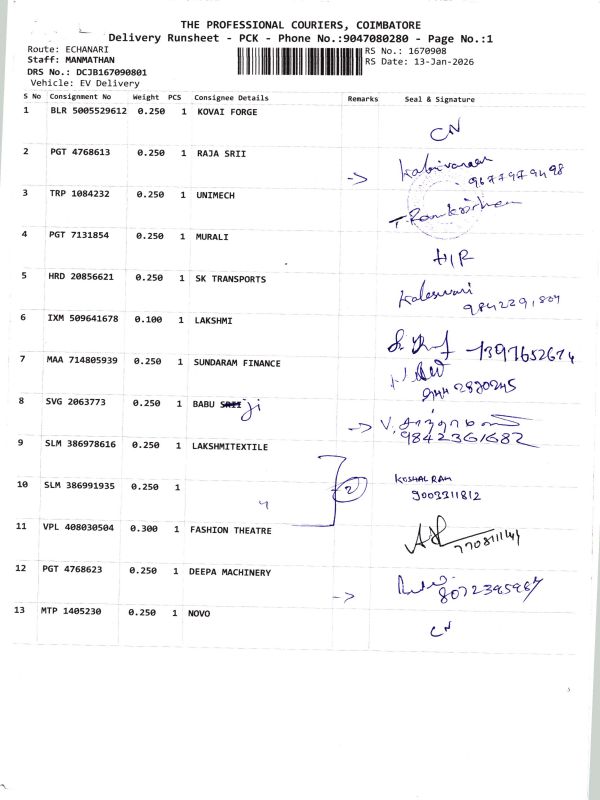 THE PROFESSIONAL COURIERS, COIMBATORE
Delivery Runsheet - PCK - Phone No.:9047080280 - Page No.:1
Route: ECHANARI RS No.: 1670908
Staff: MANMATHAN RS Date: 13-Jan-2026
DRS No.: DCJB167090801
Vehicle: EV Delivery
S No Consignment No Weight PCS Consignee Details Remarks Seal & Signature
1 BLR 5005529612 0.250 1 KOVAI FORGE CN
2 PGT 4768613 0.250 1 RAJA SRII ->
3 TRP 1084232 0.250 1 UNIMECH
4 PGT 7131854 0.250 1 MURALI H/R
5 HRD 20856621 0.250 1 SK TRANSPORTS Kaleswari
6 IXM 509641678 0.100 1 LAKSHMI
7 MAA 714805939 0.250 1 SUNDARAM FINANCE
8 SVG 2063773 0.250 1 BABU SRII ji -> V.
9842361682
9 SLM 386978616 0.250 1 LAKSHMITEXTILE
10 SLM 386991935 0.250 1 " 2 KOSHAL RAM
9003311812
11 VPL 408030504 0.300 1 FASHION THEATRE
12 PGT 4768623 0.250 1 DEEPA MACHINERY ->
13 MTP 1405230 0.250 1 NOVO CN